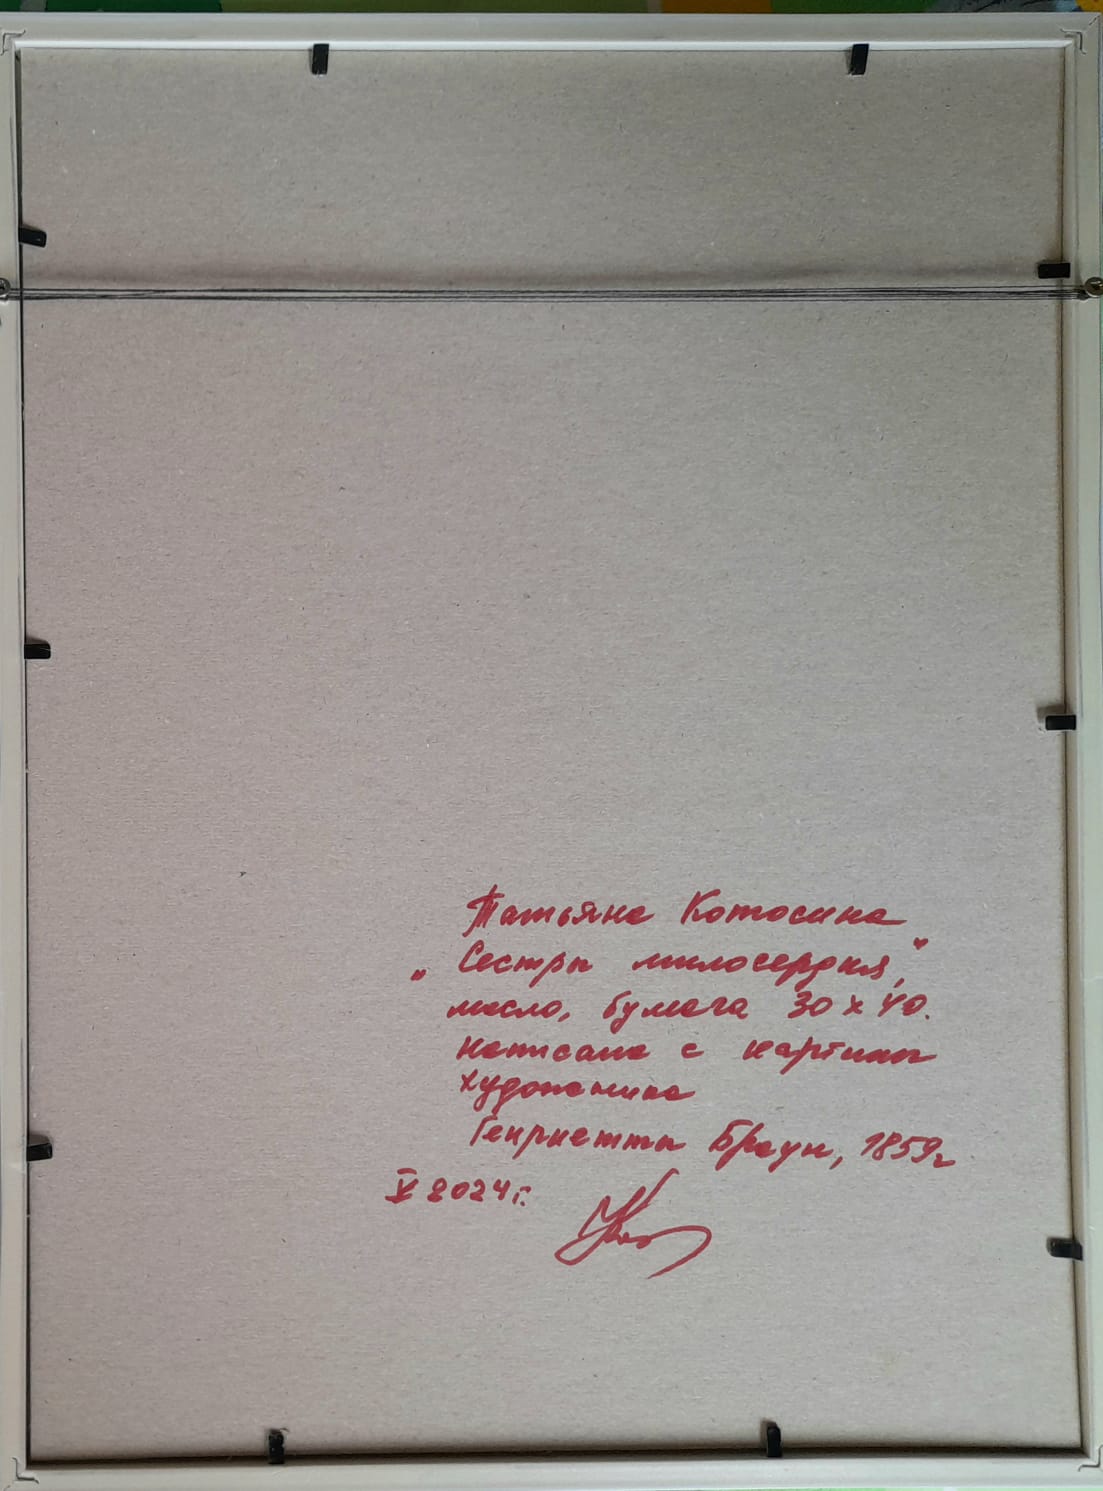 Татьяна Котосина
„Сестры милосердия,"
масло, бумага 30 x 40.
написана с картины
художника
Генриетты Браун, 1859г
V 2024г.